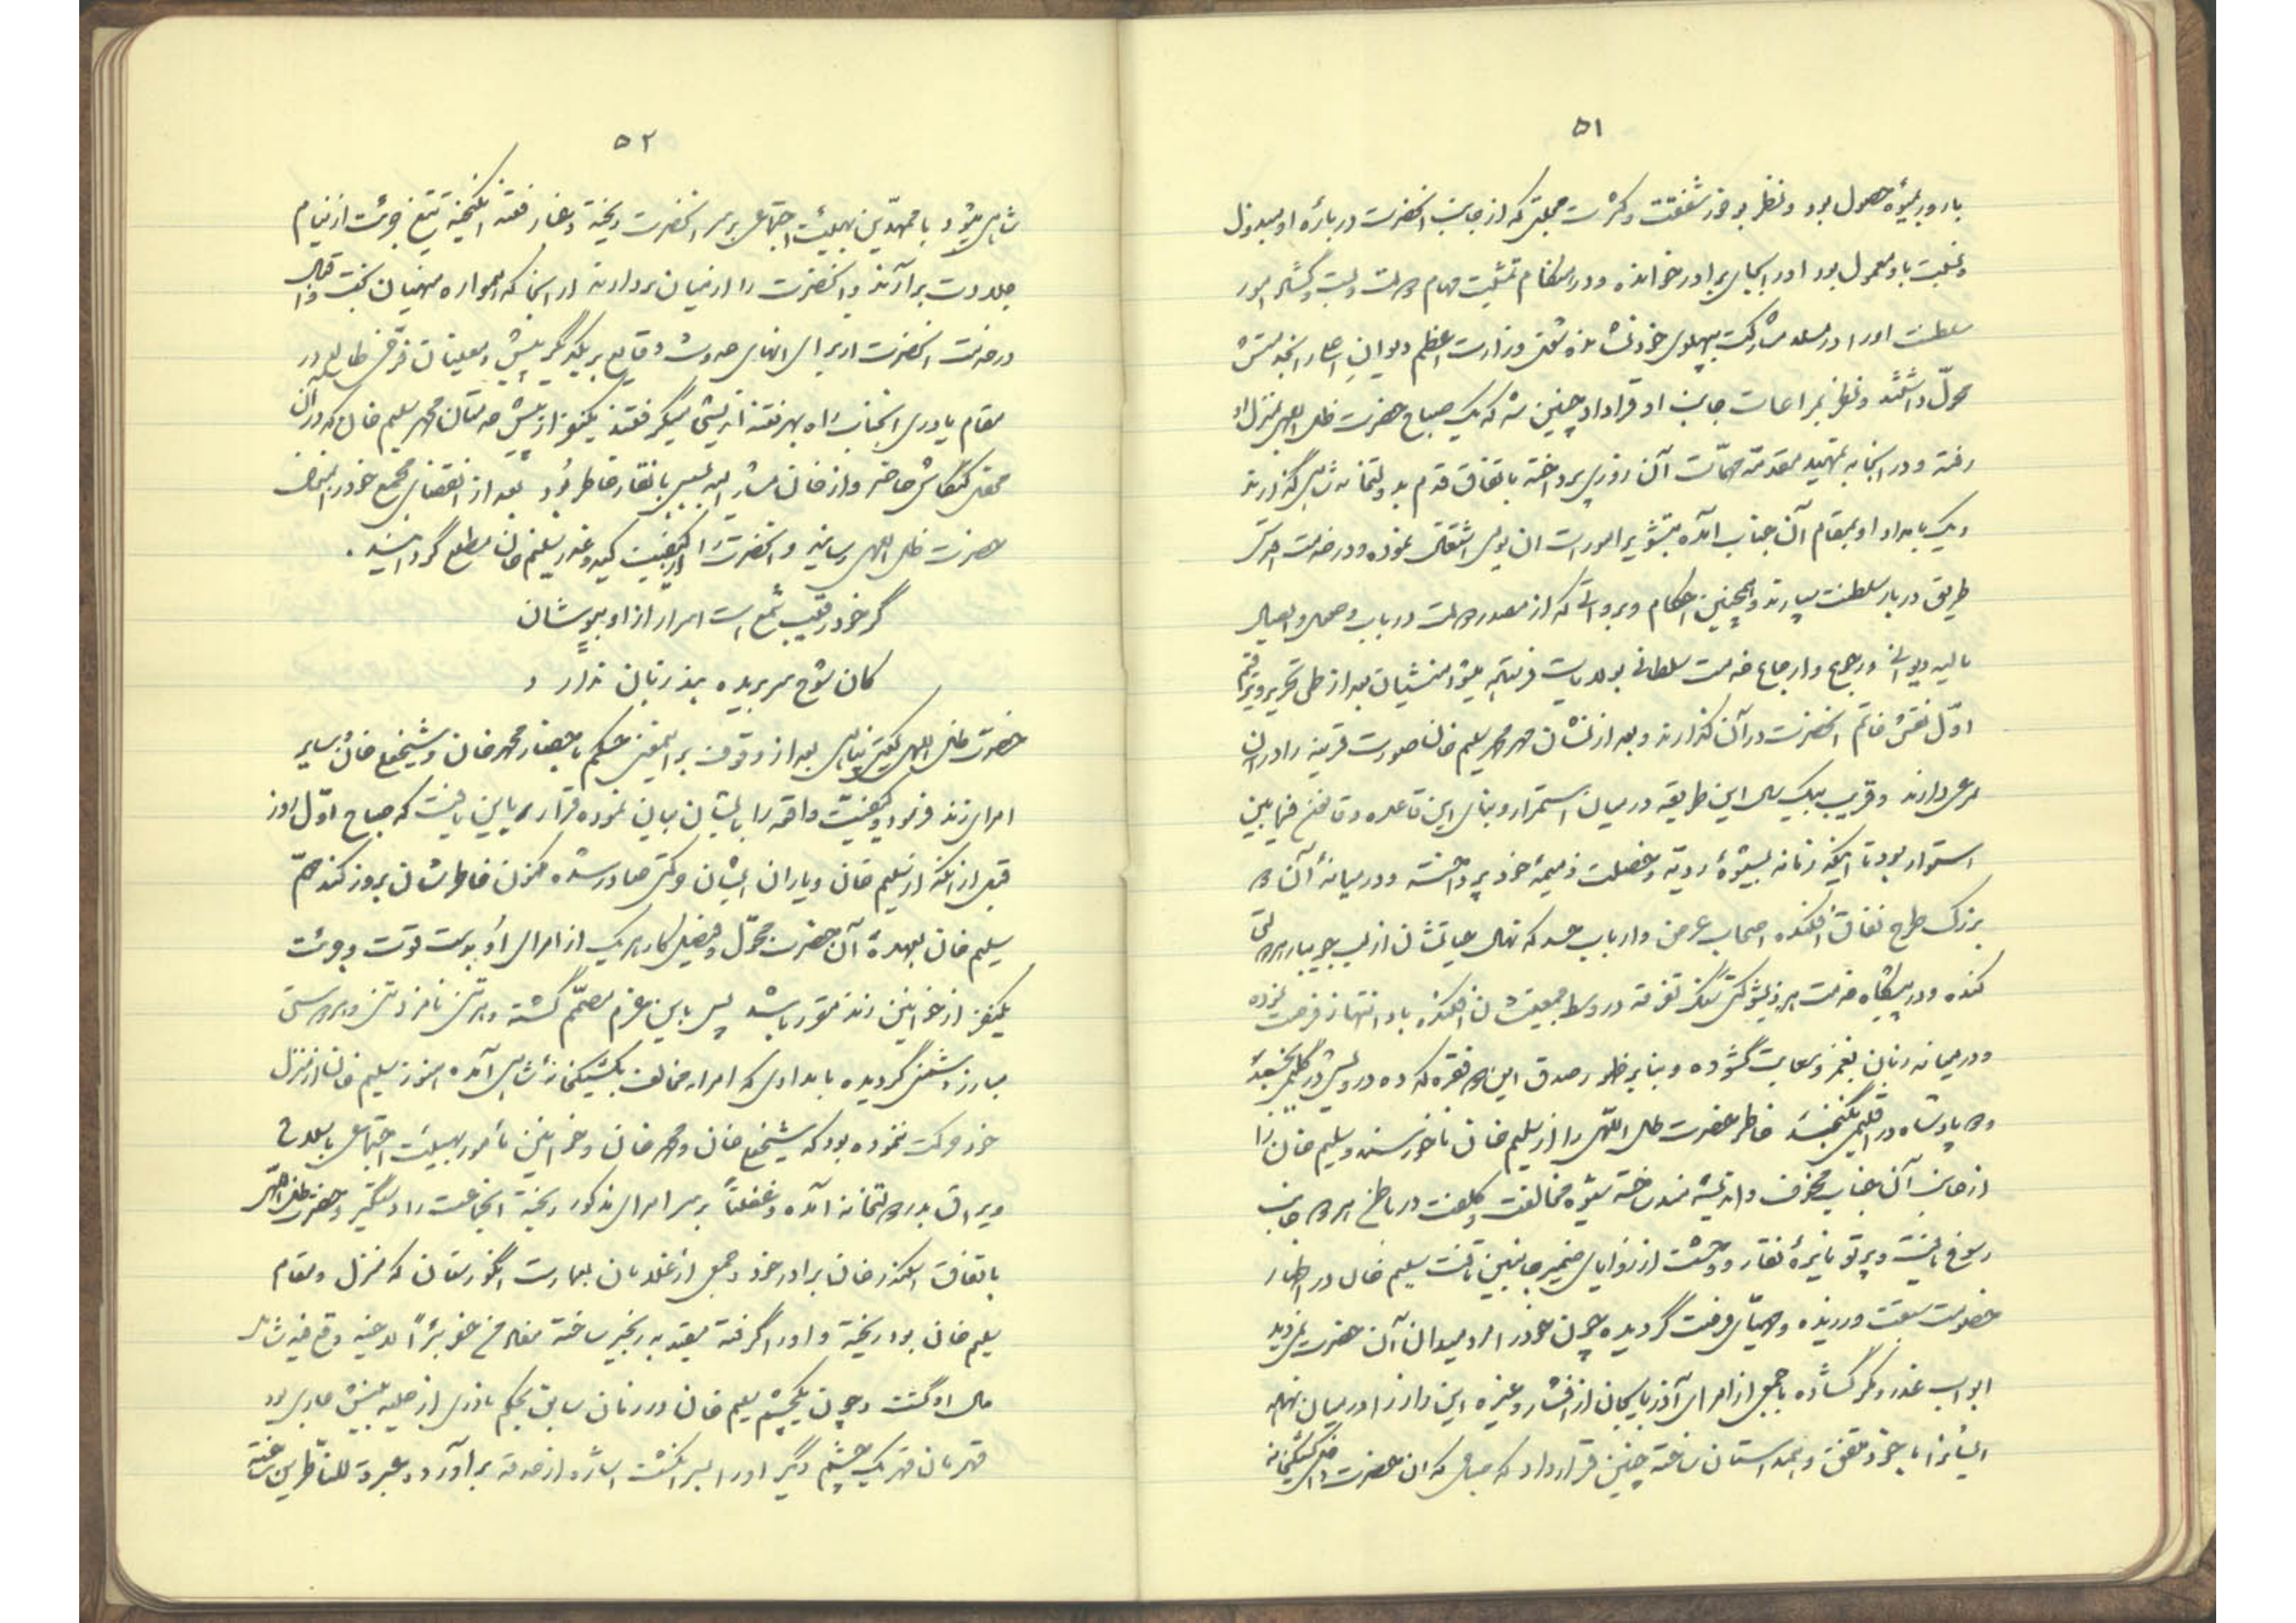 ۵۱
بارور بمیوهٔ حصول بود و نظر بوفور شفقت و کثرت محبتی که از جانب آنحضرت دربارهٔ او مبذول
و نسبت باو معمول بود او را بجای برادر خوانده و در انتظام تمشیت مهام دولت و بست و گشاد امور
سلطنت او را در مسند مشارکت بپهلوی خود نشانده شغل وزارت اعظم دیوان اعلی را بخدمتش
محوّل داشتند و نظر بمراعات جانب او قرارداد چنین شد که یک صباح حضرت ظل اللهی بمنزل او
رفته و در آنجا به تمهید مقدمه مهمّات آن روزی پرداخته باتفاق قدم بدولتخانه شاهی گذارند
و یک بامداد او بمقام آن جناب آمده بتمشیت امورات ان یومی اشتغال نموده و در خدمت اقدس
طریق دربار سلطنت سپارند و همچنین احکام و پروانجاتی که از مصدر دولت در باب وصول و ایصال
مالیه دیوانی و رجوع و ارجاع خدمت سلطانی بولایات فرستاده میشد منشیان بعد از طی تحریر و ترقیم
اوّل نقش خاتم آنحضرت در آن گذارند و بعد از نشان مهر محمد سلیم خان صورت قرینه را در آن
مرعی دارند و قریب بیک سال این طریقه در میان استمرار و بنای این قاعده و قانون فیمابین
استوار بود تا اینکه زمانه بشیوهٔ ردیّه و خصلت ذمیمهٔ خود پرداخته و در میانهٔ آن دو
بزرگ طرح نفاق افکنده اصحاب غرض و ارباب حسد که نهال حیاتشان از لب جویبار هر دو
کنده و در پیشگاه خدمت هر دو سنگ تفرقه در وسط جمعیتشان افکنده بود انتهاز فرصت نموده
و در میانه زبان بغمز و سعایت گشوده و بنابر ظهور صدق این دو فقره که ده درویش در گلیمی بخسبند
و دو پادشاه در اقلیمی نگنجند خاطر حضرت ظل اللهی را از سلیم خان ناخورسند و سلیم خان را
از جانب آن جناب مخوف و اندیشه‌مند ساخته شیوه مخالفت و کلفت در باطن هر دو جانب
رسوخ یافت و پرتو نایرهٔ نقار و وحشت از زوایای ضمیر جانبین تافت سلیم خان در اظهار
خصومت سبقت ورزیده و مهیّای فرصت گردیده چون خود را مرد میدان آن حضرت نمی‌دید
ابواب غدر و مکر گشاده با جمعی از امرای آذربایجان از افشار و غیره این راز را در میان نهاد
ایشانرا با خود متفق و همداستان ساخته چنین قرارداد که صباحی که آن حضرت داخل کشیکخانه
۵۲
شاهی میشود با معهدین بهیئت اجتماعی بر سر آنحضرت ریخته و غبار فتنه انگیخته تیغ جرئت از نیام
جلادت برآرند و آنحضرت را از میان بردارند از آنجا که همواره منهیان بخت و اقبال
در خدمت آنحضرت از برای انهای حدوث وقایع بر یکدیگر پیشی و معینان فرّخی طالع در
مقام یاوری آنجناب راه بهر فتنه اندیشی میگرفتند یکنفر از پیشخدمتان محمد سلیم خان که در آن
محفل کنکاش حاضر و از خان مشارالیه بسی بانقار خاطر بود بعد از انقضای مجمع خود را بخدمت
حضرت ظل اللهی رسانید و آنحضرت را از کیفیت کید و غدر سلیم خان مطلع گردانید .
گر خود رقیب شمع است اسرار از او بپوشان
کان شوخ سر بریده بند زبان ندارد
حضرت ظل اللهی گیتی پناهی بعد از وقوف براینمعنی حکم باحضار محمد خان و شیخعلی خان و سایر
امرای زند فرمود و کیفیّت واقعه را بایشان بیان نموده قرار بر این یافت که صباح اوّل روز
قبل از آنکه از سلیم خان و یاران ایشان حرکتی صادر شده مکنون خاطرشان بروز کند مهمّ
سلیم خان بعهدهٔ آن حضرت محوّل و فیصل کار هر یک از امرای او بدست قوّت و جرئت
یکنفر از خوانین زند مقرر باشد پس باین عزم مصمّم گشته و هر تنی نامزد تنی و هر دوستی
مبارز دشمنی گردیده بامدادی که امراء مخالف بکشیکخانهٔ شاهی آمده هنوز سلیم خان از منزل
خود حرکت نموده بود که شیخعلی خان و محمد خان و خوانین مأمور بهیئت اجتماعی باسلاح
و یراق بدر دولتخانه آمده و غفلتاً بر سر امرای مذکور ریخته آنجماعت را دستگیر و حضرت ظل اللهی
باتفاق اسکندر خان برادر خود و جمعی از غلامان بعمارت انگورستان که منزل و مقام
سلیم خان بود ریخته و او را گرفته مقید به زنجیر ساخته مفاد من حفر بئراً لاخیه وقع فیه شامل
حال او گشت و چون یکچشم سلیم خان در زمان سابق بحکم نادری از حلیه بینش عاری بود
قهرمان قهر یک چشم دیگر او را بسر انگشت اشاره از حدقه برآورد و عبرة للناظرین ساخته